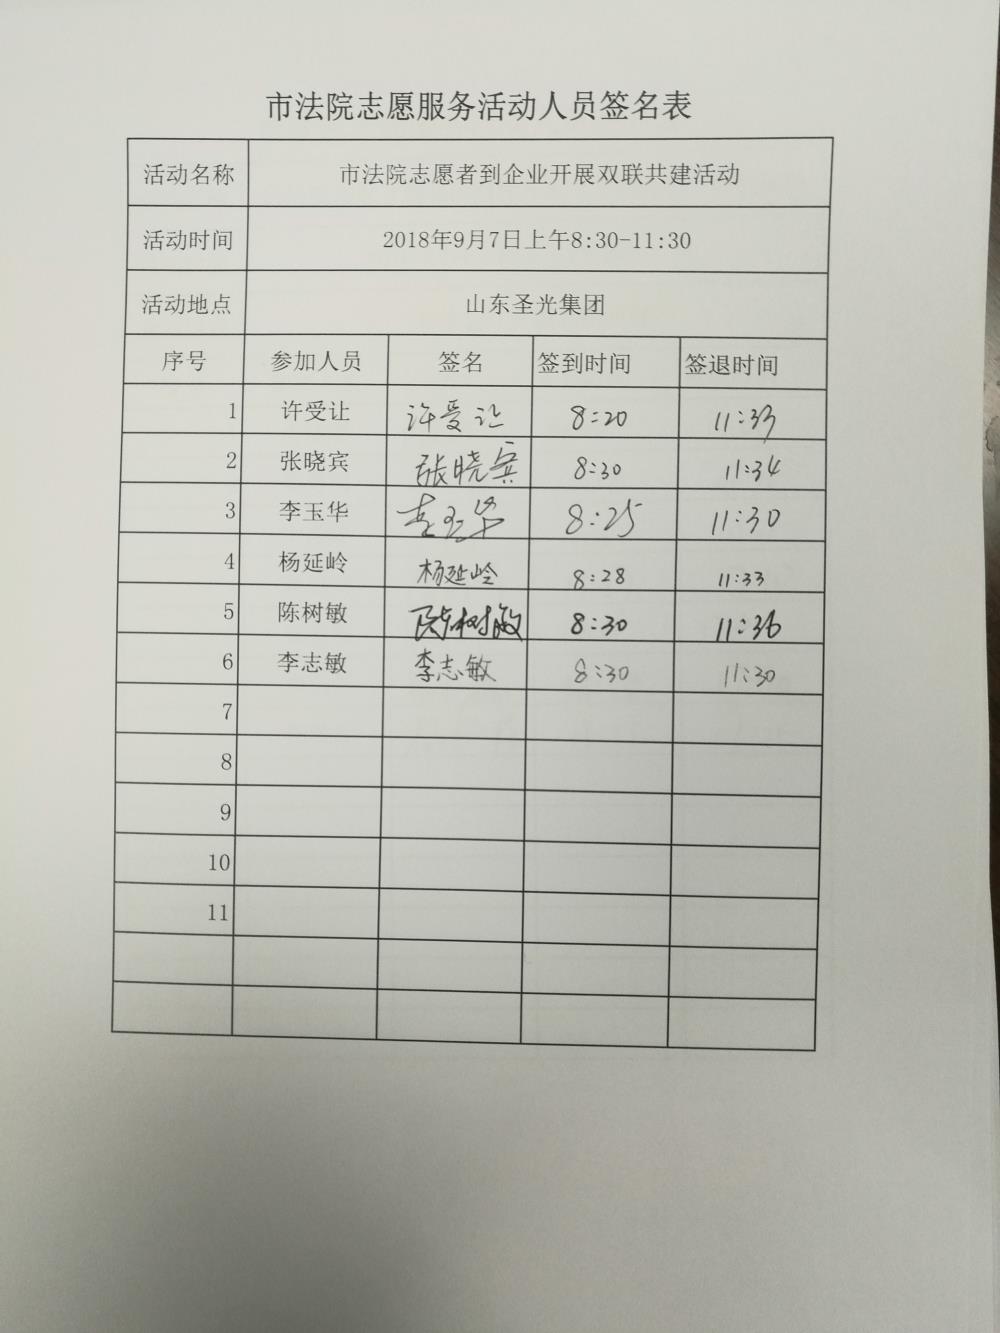 市法院志愿服务活动人员签名表
活动名称 市法院志愿者到企业开展双联共建活动
活动时间 2018年9月7日上午8:30-11:30
活动地点 山东圣光集团
序号 参加人员 签名 签到时间 签退时间
1 许受让 许受让 8:20 11:33
2 张晓宾 张晓宾 8:30 11:34
3 李玉华 李玉华 8:25 11:30
4 杨延岭 杨延岭 8:28 11:33
5 陈树敏 陈树敏 8:30 11:36
6 李志敏 李志敏 8:30 11:30
7
8
9
10
11